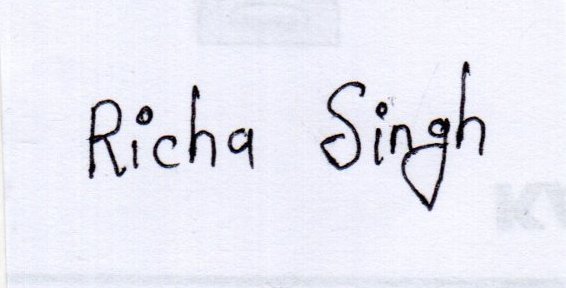 Richa Singh